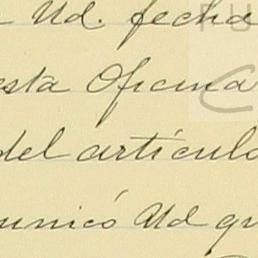 Ud. fecha
esta Oficina
del artículo
unicó Ud gr